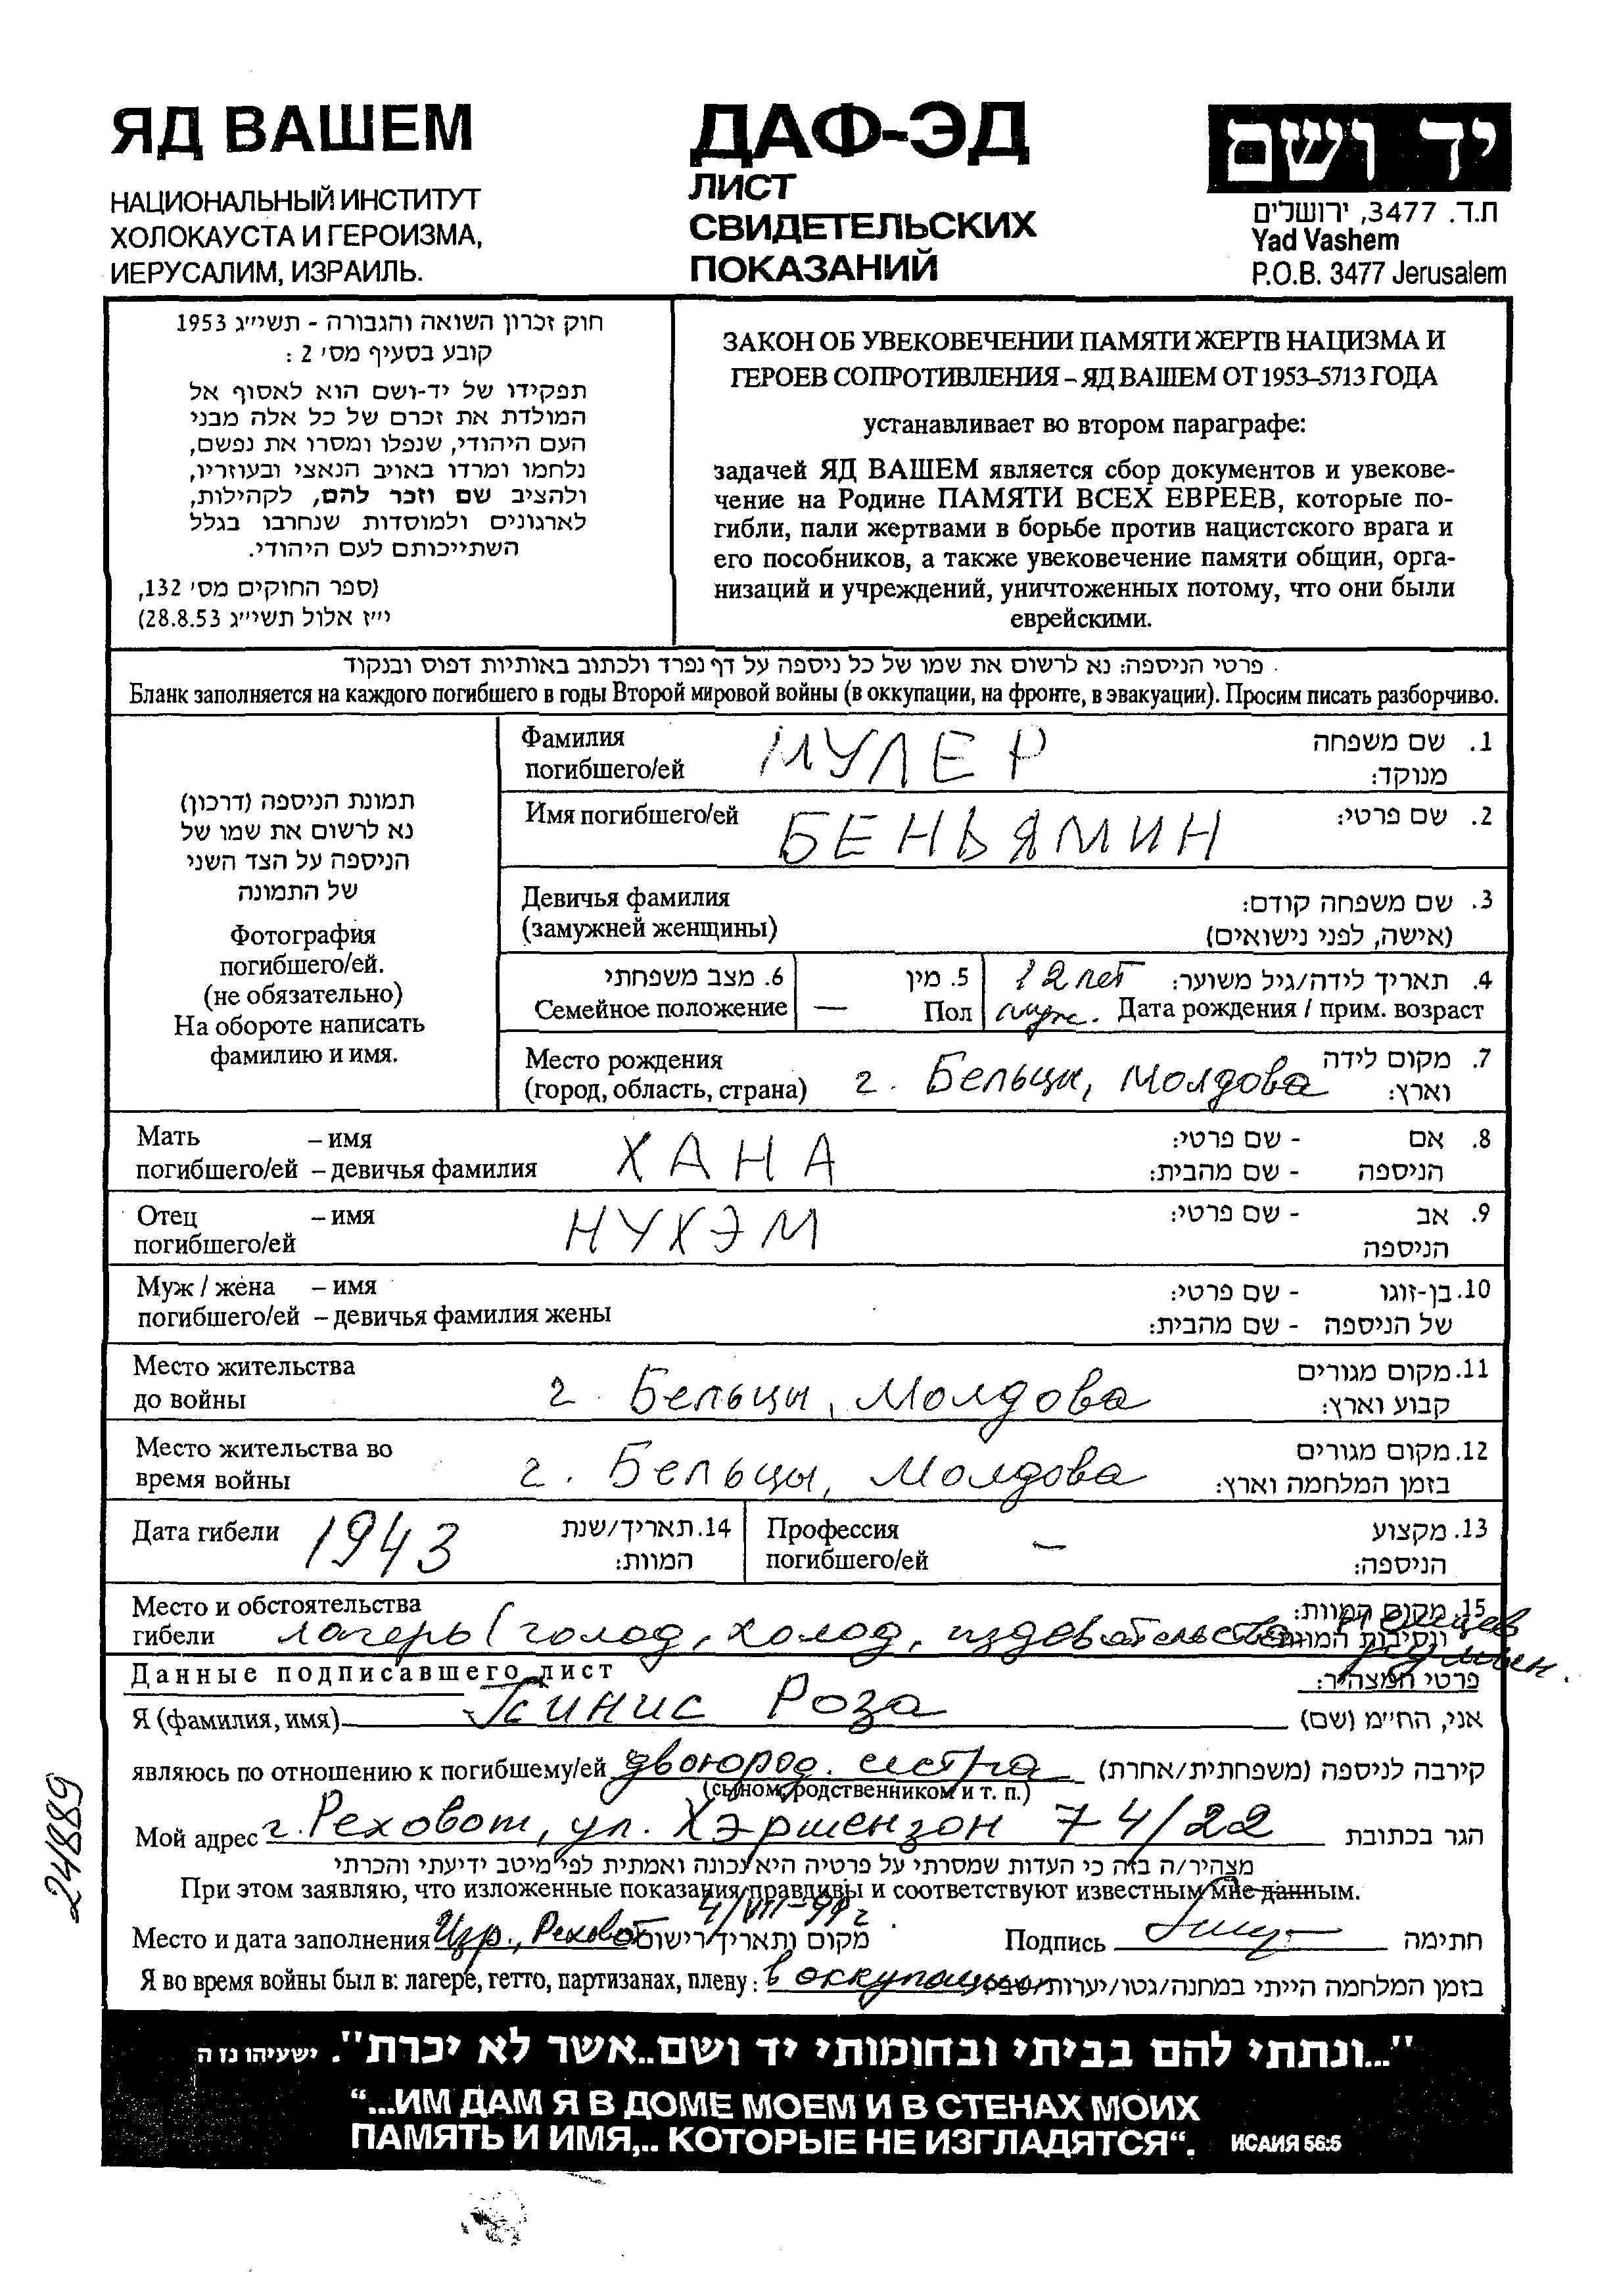 ЯД ВАШЕМ
НАЦИОНАЛЬНЫЙ ИНСТИТУТ
ХОЛОКАУСТА И ГЕРОИЗМА,
ИЕРУСАЛИМ, ИЗРАИЛЬ.
ДАФ-ЭД
ЛИСТ
СВИДЕТЕЛЬСКИХ
ПОКАЗАНИЙ
יד ושם
ת.ד. 3477, ירושלים
Yad Vashem
P.O.B. 3477 Jerusalem
חוק זכרון השואה והגבורה - תשי״ג 1953
קובע בסעיף מס׳ 2 :
תפקידו של יד-ושם הוא לאסוף אל
המולדת את זכרם של כל אלה מבני
העם היהודי, שנפלו ומסרו את נפשם,
נלחמו ומרדו באויב הנאצי ובעוזריו,
ולהציב שם וזכר להם, לקהילות,
לארגונים ולמוסדות שנחרבו בגלל
השתייכותם לעם היהודי.
(ספר החוקים מס׳ 132,
י״ז אלול תשי״ג 28.8.53)
ЗАКОН ОБ УВЕКОВЕЧЕНИИ ПАМЯТИ ЖЕРТВ НАЦИЗМА И
ГЕРОЕВ СОПРОТИВЛЕНИЯ – ЯД ВАШЕМ ОТ 1953–5713 ГОДА
устанавливает во втором параграфе:
задачей ЯД ВАШЕМ является сбор документов и увекове-
чение на Родине ПАМЯТИ ВСЕХ ЕВРЕЕВ, которые по-
гибли, пали жертвами в борьбе против нацистского врага и
его пособников, а также увековечение памяти общин, орга-
низаций и учреждений, уничтоженных потому, что они были
еврейскими.
פרטי הניספה: נא לרשום את שמו של כל ניספה על דף נפרד ולכתוב באותיות דפוס ובנקוד
Бланк заполняется на каждого погибшего в годы Второй мировой войны (в оккупации, на фронте, в эвакуации). Просим писать разборчиво.
תמונת הניספה (דרכון)
נא לרשום את שמו של
הניספה על הצד השני
של התמונה
Фотография
погибшего/ей.
(не обязательно)
На обороте написать
фамилию и имя.
Фамилия МУЛЕР 1. שם משפחה
погибшего/ей מנוקד:
Имя погибшего/ей БЕНЬЯМИН 2. שם פרטי:
Девичья фамилия 3. שם משפחה קודם:
(замужней женщины) (אישה, לפני נישואים)
6. מצב משפחתי 5. מין 12 лет 4. תאריך לידה/גיל משוער:
Семейное положение — Пол муж. Дата рождения / прим. возраст
Место рождения 7. מקום לידה
(город, область, страна) г. Бельцы, Молдова וארץ:
Мать – имя ХАНА 8. אם - שם פרטי:
погибшего/ей – девичья фамилия הניספה - שם מהבית:
Отец – имя НУХЭМ 9. אב - שם פרטי:
погибшего/ей הניספה
Муж / жена – имя 10. בן-זוגו - שם פרטי:
погибшего/ей – девичья фамилия жены של הניספה - שם מהבית:
Место жительства 11. מקום מגורים
до войны г. Бельцы, Молдова קבוע וארץ:
Место жительства во 12. מקום מגורים
время войны г. Бельцы, Молдова בזמן המלחמה וארץ:
Дата гибели 1943 14. תאריך/שנת Профессия — 13. מקצוע
המוות: погибшего/ей הניספה:
Место и обстоятельства 15. מקום המוות:
гибели лагерь (голод, холод, издевательства немцев ונסיבות המוות
румын.
Данные подписавшего лист פרטי המצהיר:
Я (фамилия, имя) Роза אני, הח״מ (שם)
являюсь по отношению к погибшему/ей двоюрод. сестра קירבה לניספה (משפחתית/אחרת)
(сыном, родственником и т. п.)
Мой адрес г. Реховот, ул. Хэршензон 74/22 הגר בכתובת
מצהיר/ה בזה כי העדות שמסרתי על פרטיה היא נכונה ואמתית לפי מיטב ידיעתי והכרתי
При этом заявляю, что изложенные показания правдивы и соответствуют известным мне данным.
4/VII-99 г
Место и дата заполнения Изр., Реховот מקום ותאריך רישום Подпись חתימה
Я во время войны был в: лагере, гетто, партизанах, плену: в оккупации בזמן המלחמה הייתי במחנה/גטו/יערות/
24889
"...ונתתי להם בביתי ובחומותי יד ושם..אשר לא יכרת". ישעיהו נז ה
“...ИМ ДАМ Я В ДОМЕ МОЕМ И В СТЕНАХ МОИХ
ПАМЯТЬ И ИМЯ,.. КОТОРЫЕ НЕ ИЗГЛАДЯТСЯ“. ИСАИЯ 56:5